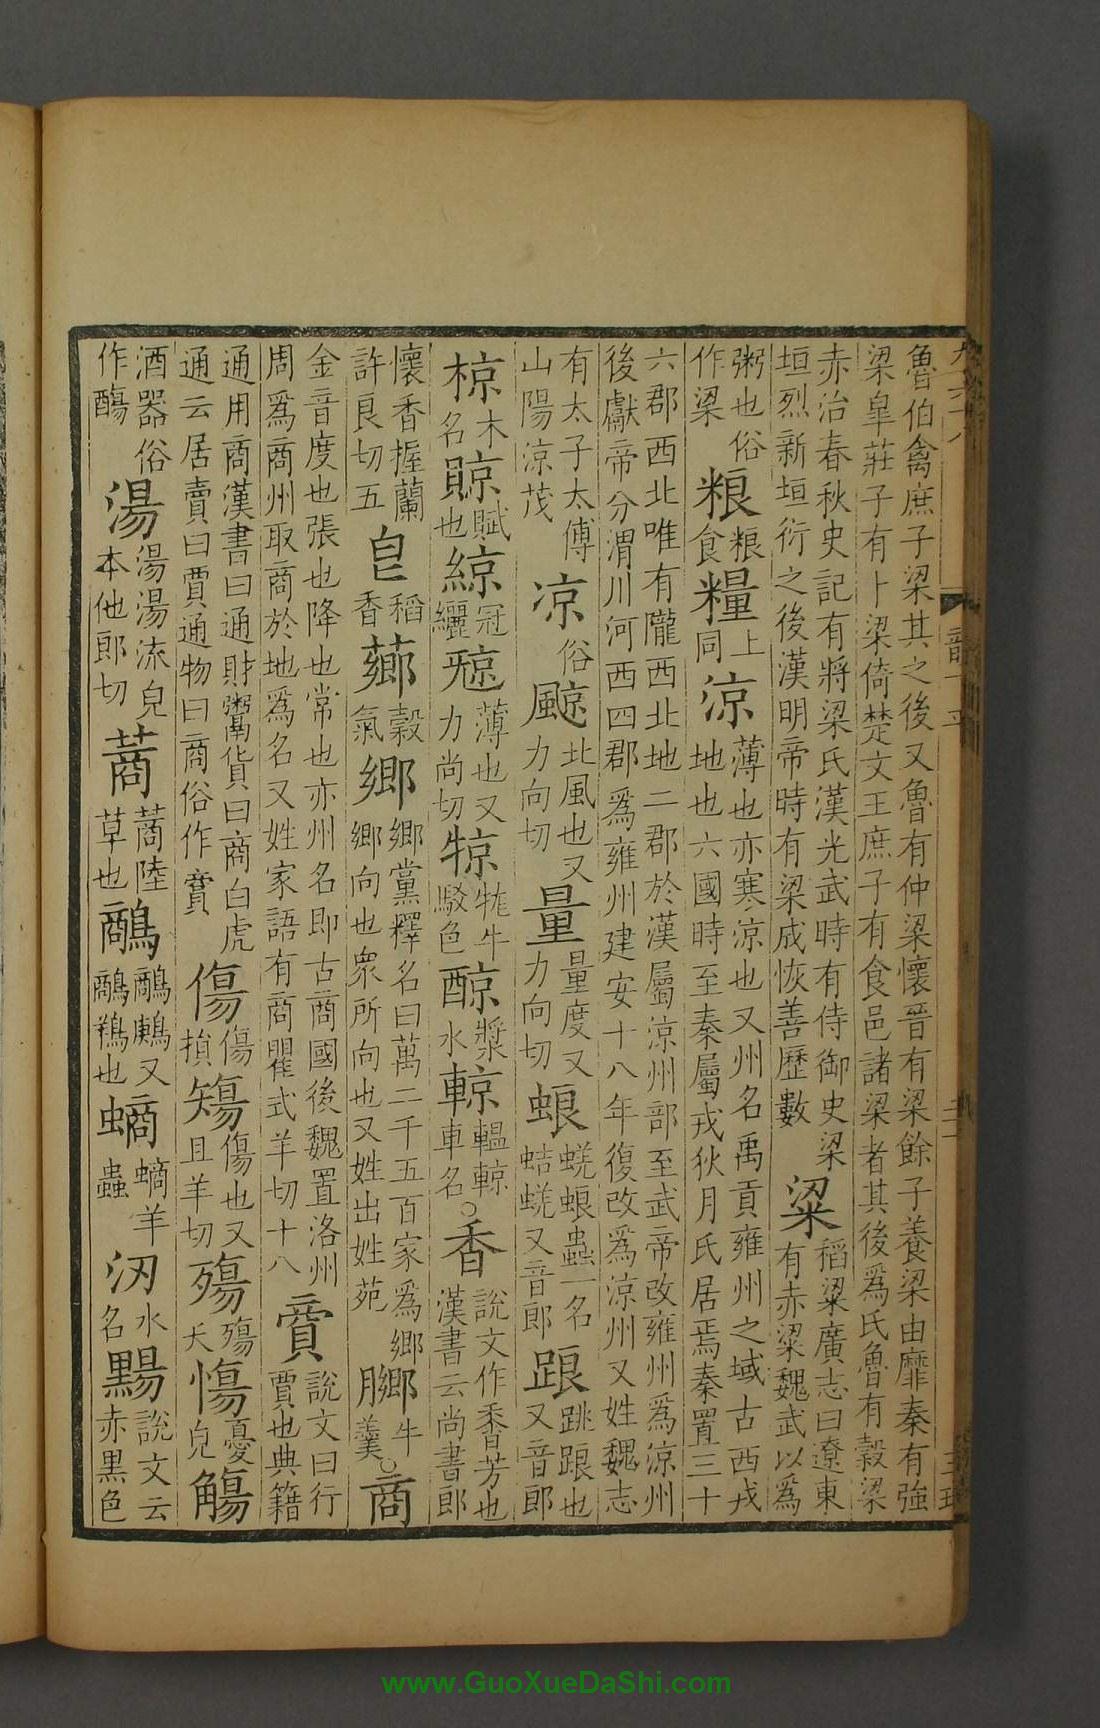 魯伯禽庶子梁其之後又魯有仲梁懷晉有梁餘子養梁由靡秦有強
梁皐莊子有卜梁倚楚文王庶子有食邑諸梁者其後爲氏魯有穀梁
赤治春秋史記有將梁氏漢光武時有侍御史梁
垣烈新垣衍之後漢明帝時有梁成恢善歷數
粱
稻粱廣志曰遼東
有赤粱魏武以爲
粥也俗
作梁
粮
粮
食
糧
上
同
涼
薄也亦寒涼也又州名禹貢雍州之域古西戎
地也六國時至秦屬戎狄月氏居焉秦置三十
六郡西北唯有隴西北地二郡於漢屬涼州部至武帝改雍州爲涼州
後獻帝分渭川河西四郡爲雍州建安十八年復改爲涼州又姓魏志
有太子太傅
山陽涼茂
凉
俗
䬅
北風也又
力向切
量
量度又
力向切
蜋
蜣蜋蟲一名
蛣蜣又音郎
踉
跳踉也
又音郎
椋
木
名
䝶
賦
也
綡
冠
纚
㹁
薄也又
力尚切
㹁
牻牛
駁色
醇
漿
水
輬
轀輬
車名
○
香
說文作香芳也
漢書云尚書郎
懷香握蘭
許良切五
皀
稻
香
薌
穀
氣
鄉
鄉黨釋名曰萬二千五百家爲鄉
鄉向也衆所向也又姓出姓苑
膷
牛
羹
○
商
金音度也張也降也常也亦州名即古商國後魏置洛州
周爲商州取商於地爲名又姓家語有商瞿式羊切十八
賫
說文曰行
賈也典籍
通用商漢書曰通財鬻貨曰商白虎
通云居賣曰賈通物曰商俗作賫
傷
傷
損
㿒
傷也又
且羊切
殤
殤
夭
慯
憂
皃
觴
酒器俗
作䬗
湯
湯湯流皃
本他郎切
蔏
蔏陸
草也
鷊
鷊鶶又
鷊鷬也
螪
螪羊
蟲
汈
水
名
䵮
說文云
赤黑色
www.GuoXueDaShi.com